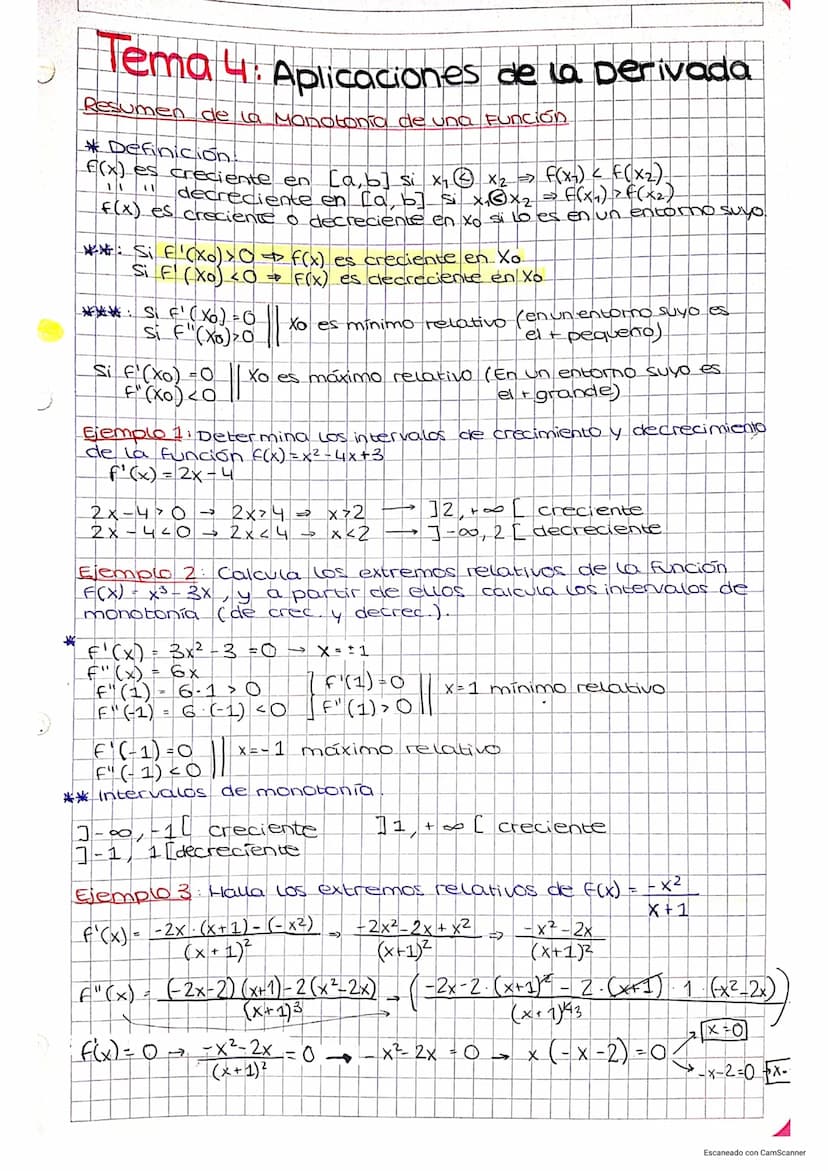 Tema 4: Aplicaciones de la Derivada
Resumen de la Monotonía de una Función
* Definición:
f(x) es creciente en [a,b] si x₁ < x₂ ⇒ f(x₁) < f(x₂)
" " decreciente en [a, b] si x₁ < x₂ ⇒ f(x₁) > f(x₂)
f(x) es creciente o decreciente en x₀ si lo es en un entorno suyo.
**: Si f'(x₀)>0 ⇒ f(x) es creciente en x₀
Si f'(x₀)<0 ⇒ f(x) es decreciente en x₀
***: Si f'(x₀)=0 || x₀ es mínimo relativo (en un entorno suyo es
Si f''(x₀)>0 el + pequeño)
Si f'(x₀)=0 || x₀ es máximo relativo (En un entorno suyo es
f''(x₀)<0 el + grande)
Ejemplo 1: Determina los intervalos de crecimiento y decrecimiento
de la función f(x)=x²-4x+3
f'(x)=2x-4
2x-4>0 → 2x>4 ⇒ x>2 → ]2,+∞[ creciente
2x-4<0 → 2x<4 → x<2 → ]-∞,2[ decreciente
Ejemplo 2: Calcula los extremos relativos de la función
f(x)=x³-3x, y a partir de ellos calcula los intervalos de
monotonía (de crec. y decrec.).
*
f'(x)=3x²-3=0 → x=±1
f''(x)=6x
f''(1)=6·1>0 ] f'(1)=0 || x=1 mínimo relativo
f''(-1)=6·(-1)<0 ] f''(1)>0
f'(-1)=0 || x=-1 máximo relativo
f''(-1)<0
** Intervalos de monotonía.
]-∞,-1[ creciente ]1,+∞[ creciente
]-1, 1[ decreciente
Ejemplo 3: Halla los extremos relativos de f(x) = -x² / x+1
f'(x) = -2x·(x+1)-(-x²) / (x+1)² → -2x²-2x+x² / (x+1)² ⇒ -x²-2x / (x+1)²
f''(x) = (-2x-2)(x+1)-2(x²-2x) / (x+1)³ → (-2x-2·(x+1)² - 2·(x+1)·1·(-x²-2x) / (x+1)⁴³)
f'(x)=0 → -x²-2x / (x+1)² = 0 → -x²-2x=0 → x(-x-2)=0 x=0
-x-2=0 → x=-
Escaneado con CamScanner